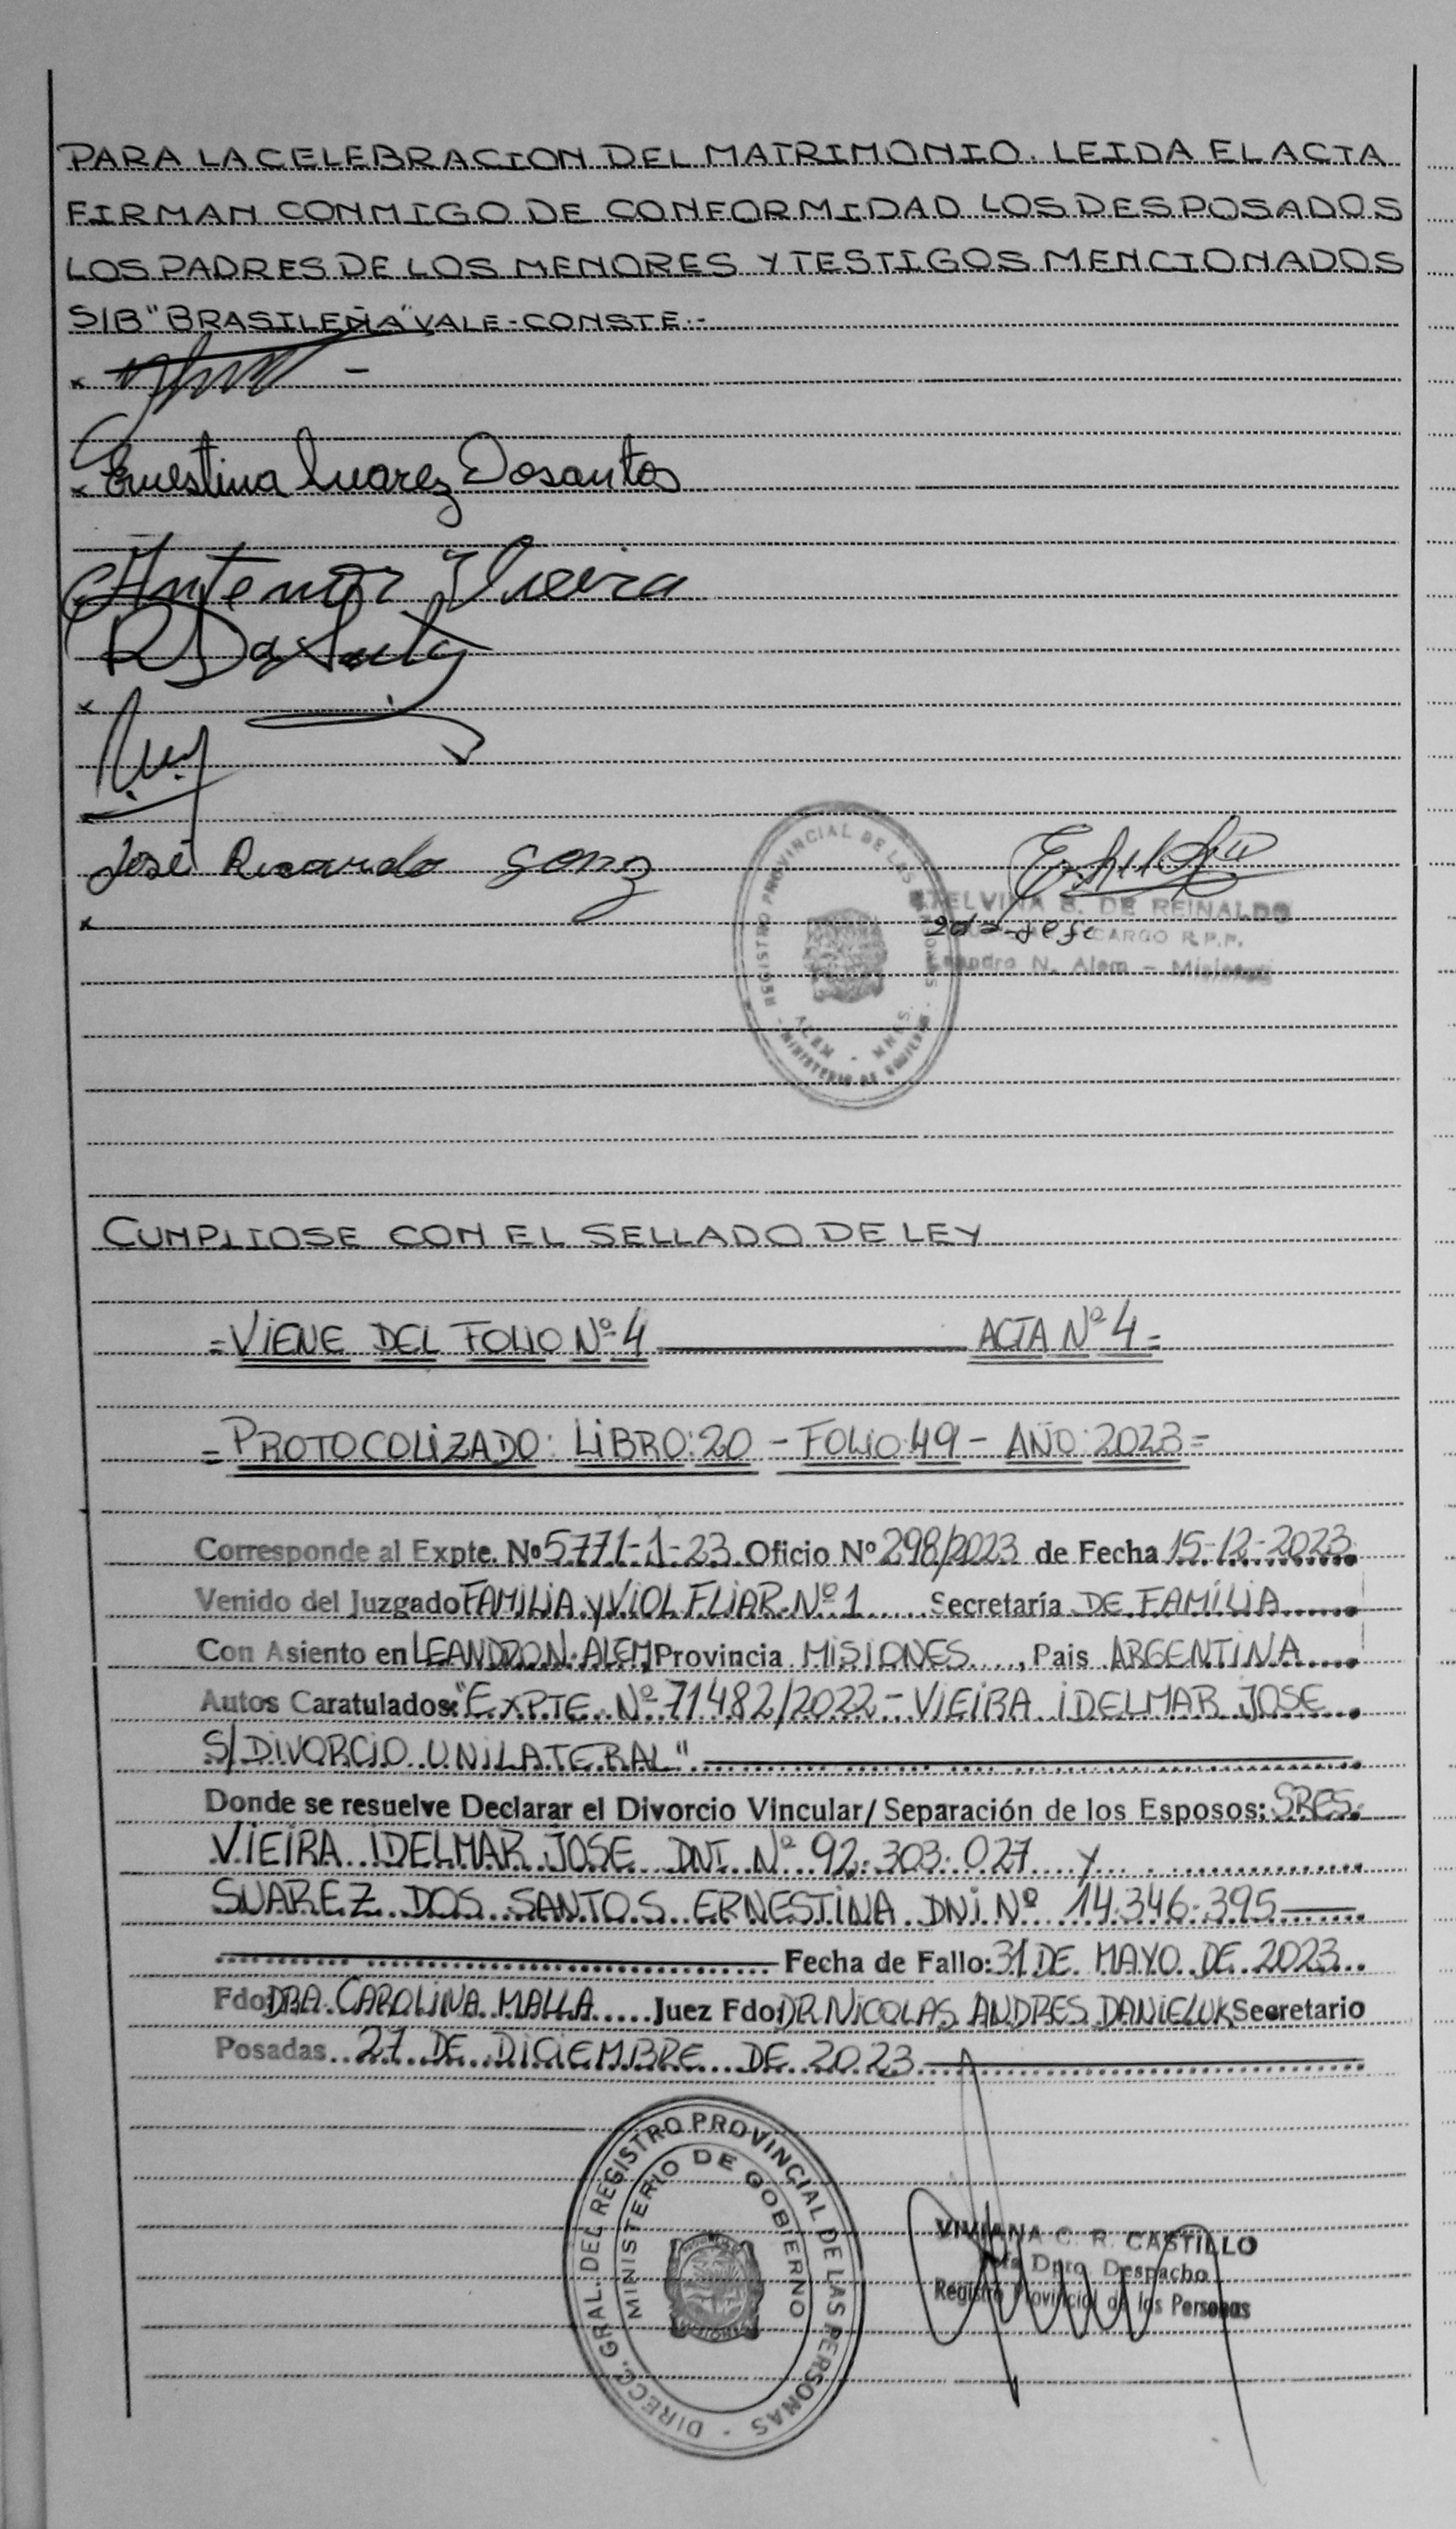 PARA LA CELEBRACION DEL MATRIMONIO. LEIDA EL ACTA
FIRMAN CONMIGO DE CONFORMIDAD LOS DESPOSADOS
LOS PADRES DE LOS MENORES Y TESTIGOS MENCIONADOS
S/B "BRASILEÑA" VALE-CONSTE.-
Ernestina Suarez Dosantos
Antenor Vieira
José Ricardo Gonz
REGISTRO PROVINCIAL DE LAS PERSONAS
ALEM - MNES.
- MINISTERIO DE GOBIERNO -
ETELVINA S. DE REINALDO
2da Jefe CARGO R.P.P.
Leandro N. Alem - Misiones
CUMPLIOSE CON EL SELLADO DE LEY
= VIENE DEL FOLIO Nº 4 ACTA Nº 4 =
= PROTOCOLIZADO: LIBRO: 20 - FOLIO: 49 - AÑO: 2023 =
Corresponde al Expte. Nº 5771-1-23 Oficio Nº 298/2023 de Fecha 15-12-2023
Venido del Juzgado FAMILIA Y VIOL FLIAR. Nº 1 Secretaría DE FAMILIA
Con Asiento en LEANDRO N. ALEM, Provincia MISIONES, Pais ARGENTINA
Autos Caratulados: "EXPTE. Nº 71482/2022 - VIEIRA IDELMAR JOSE
S/ DIVORCIO UNILATERAL"
Donde se resuelve Declarar el Divorcio Vincular/ Separación de los Esposos: SRES.
VIEIRA IDELMAR JOSE DNI Nº 92.303.027 y
SUAREZ DOS SANTOS ERNESTINA DNI Nº 14.346.395
Fecha de Fallo: 31 DE MAYO DE 2023
Fdo DRA. CAROLINA MALLA Juez Fdo DR NICOLAS ANDRES DANIELUK Secretario
Posadas 27 DE DICIEMBRE DE 2023
DIRECC. GRAL. DEL REGISTRO PROVINCIAL DE LAS PERSONAS -
MINISTERIO DE GOBIERNO
MISIONES
VIVIANA C. R. CASTILLO
Jefa Dpto. Despacho
Registro Provincial de las Personas